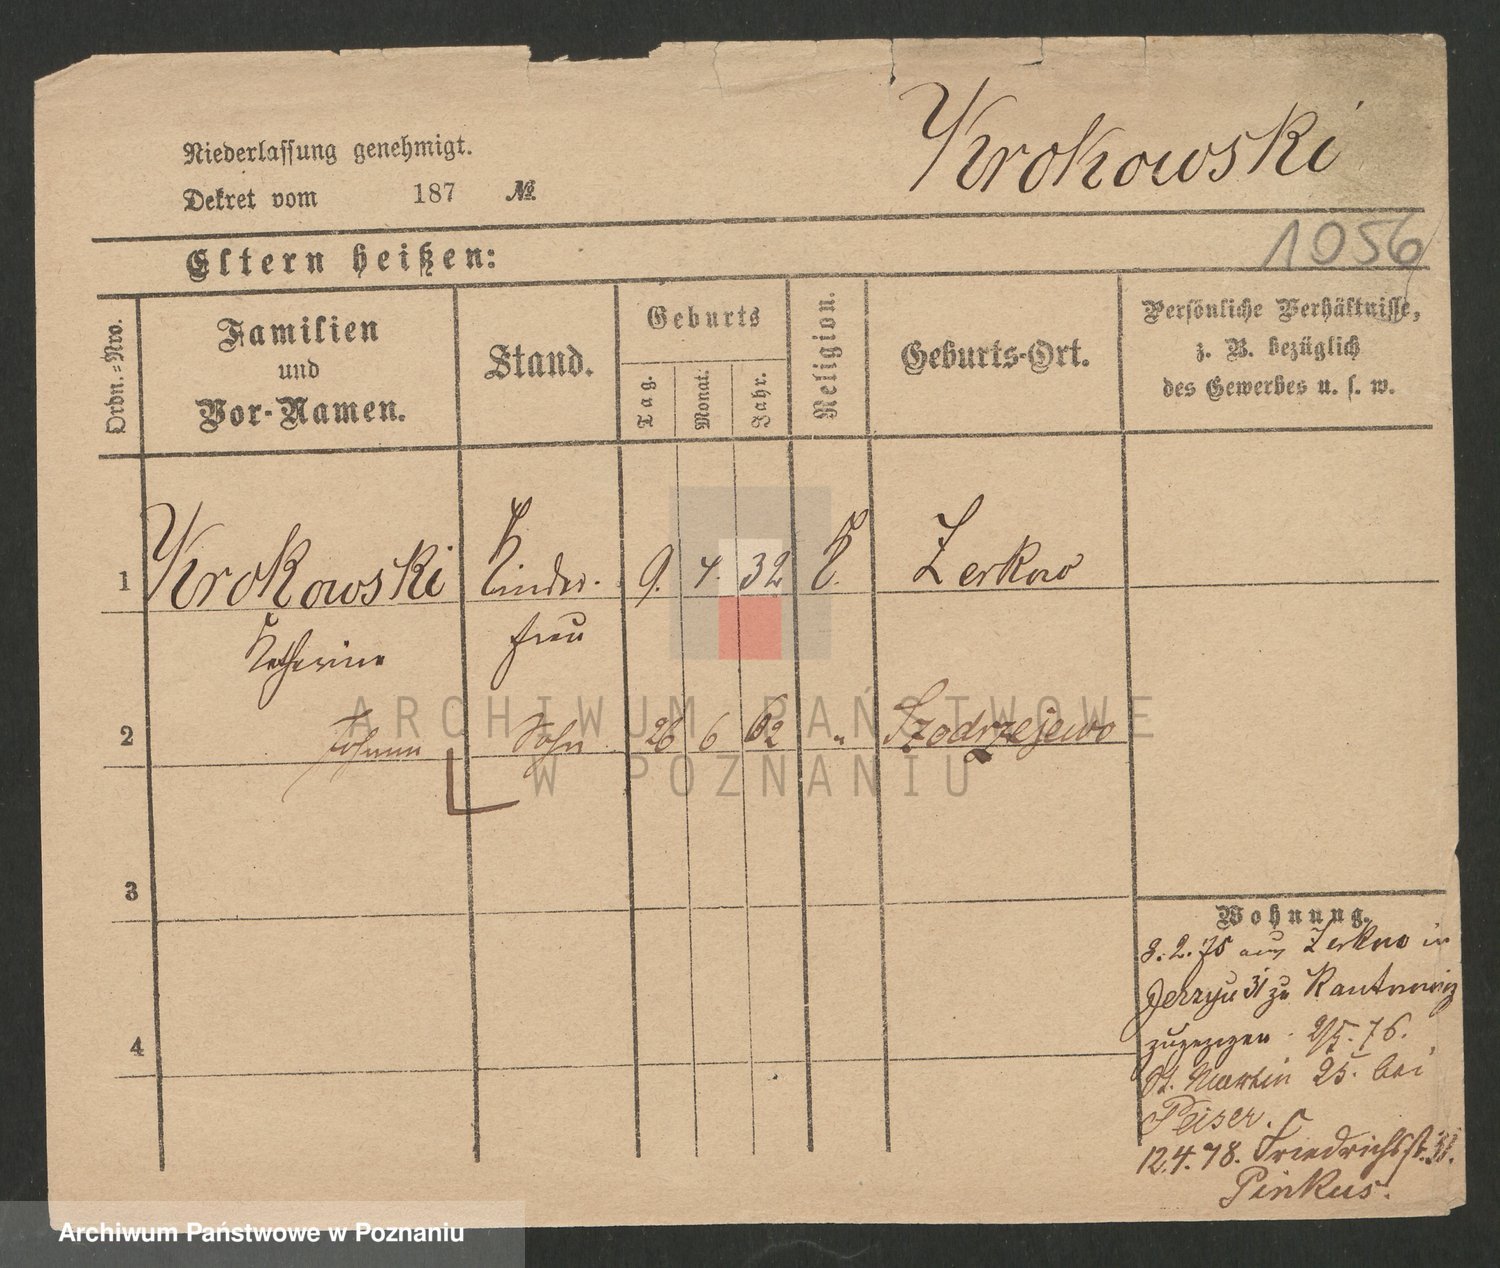 Niederlassung genehmigt.
Krokowski
Dekret vom 187 №
1056
Eltern heißen:
Ordn.=Nro.
Familien
und
Vor-Namen.
Stand.
Geburts
Tag.
Monat.
Jahr.
Religion.
Geburts-Ort.
Persönliche Verhältnisse,
z. B. bezüglich
des Gewerbes u. s. w.
1 Krokowski Kinder- 9. 4. 32 K. Zerkow
Katharine frau
2 Johann Sohn 26 6 62 " Szodrzejewo
3
4
Wohnung.
3.2.75 aus Zerkow in
Jerzyu 31 zu
zugezogen. 2/5.76.
St. Martin 25. bei
Peiser.
12.4.78. Friedrichsst. 31.
Pinkus.
ARCHIWUM PAŃSTWOWE
W POZNANIU
Archiwum Państwowe w Poznaniu